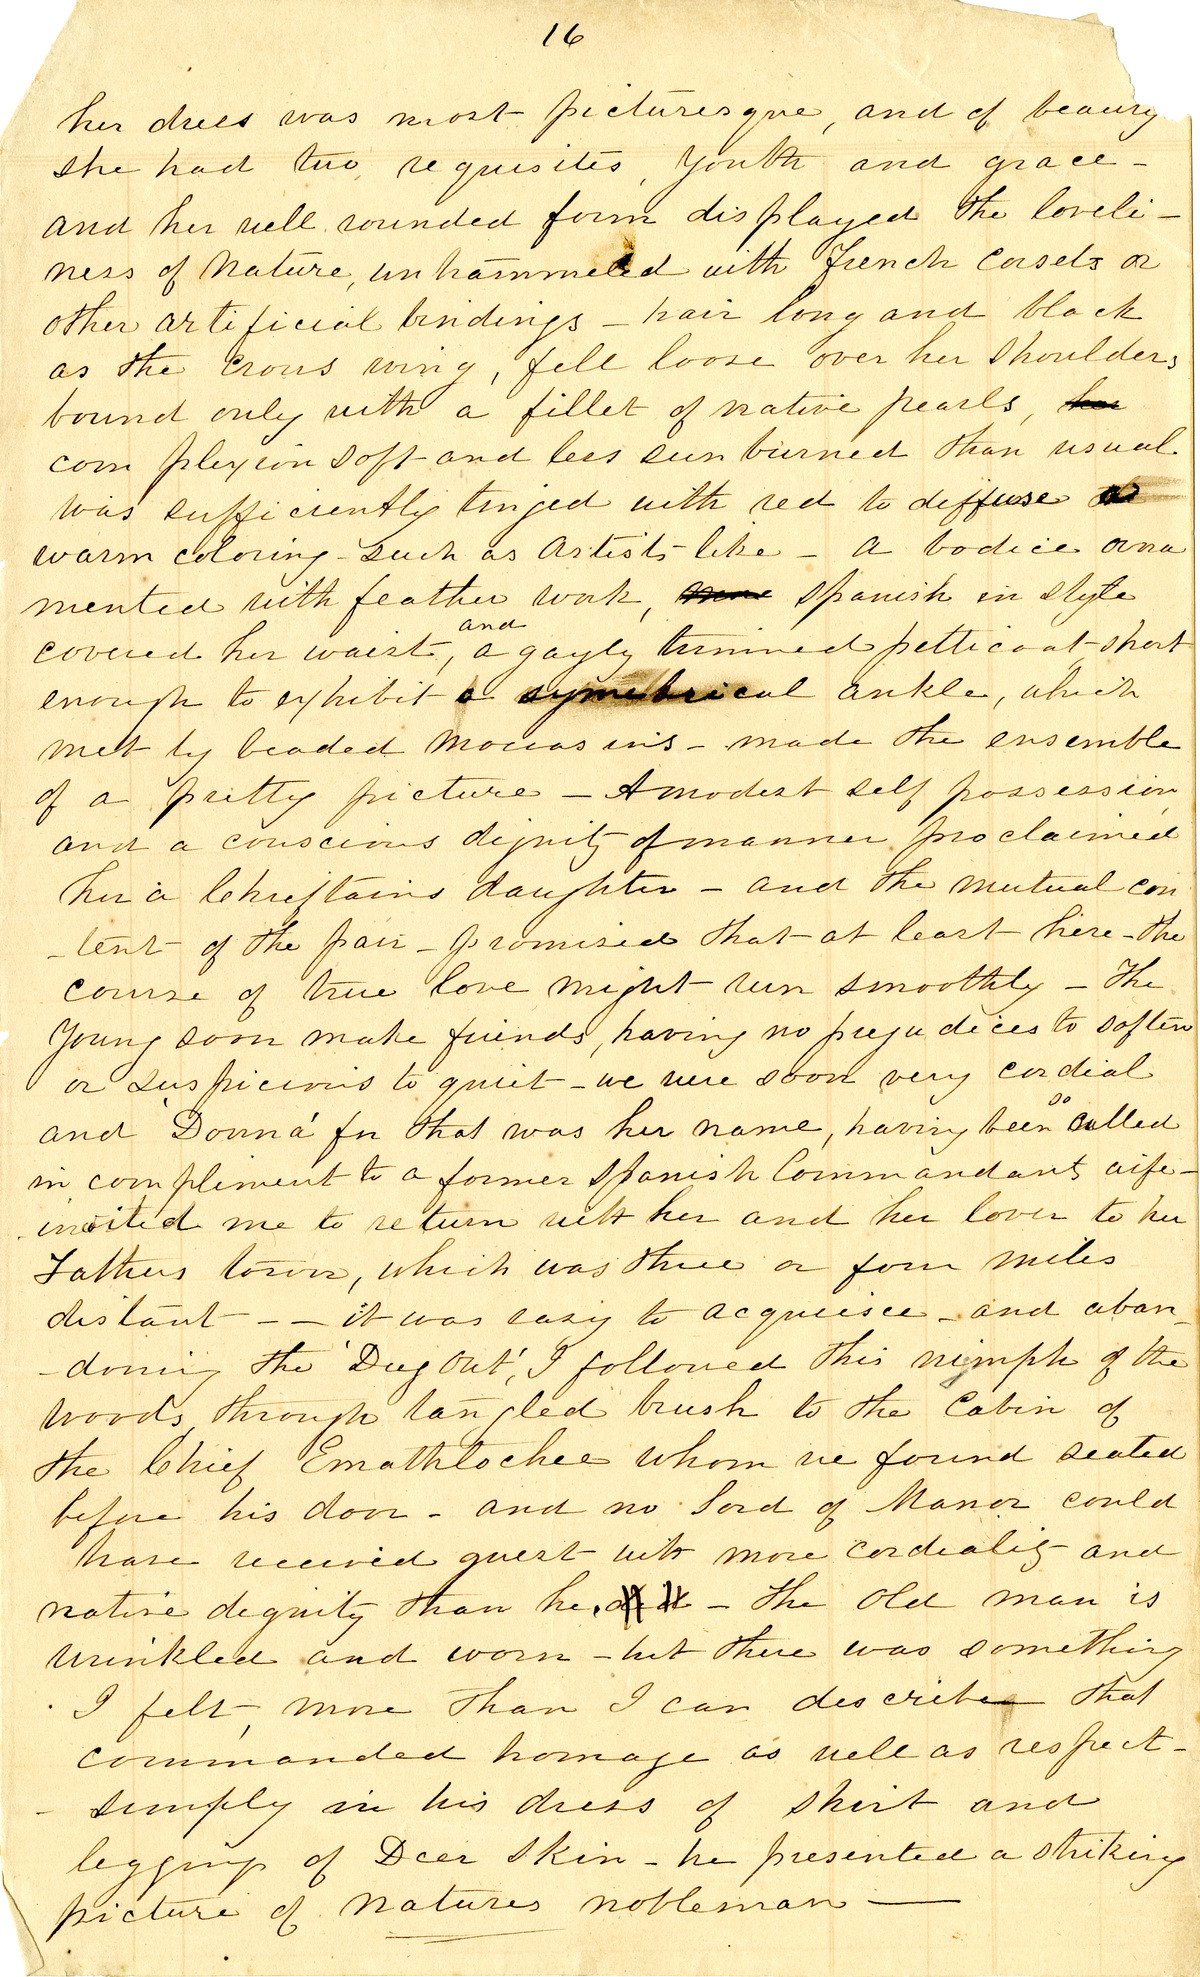 16
her dress was most picturesque, and of beauty
she had two requisites, Youth and grace -
and her well rounded form displayed the loveli-
ness of Nature, unhammeled with French Corsets or
other artificial bindings - hair long and black
as the crows wing, fell loose over her shoulders
bound only with a fillet of native pearls, her
complexion soft and less sun burned than usual
was sufficiently tinged with red to diffuse a
warm coloring - such as Artists like - A bodice orna
mented with feather work, Spanish in style
covered her waist, and a gayly trimmed petticoat short
enough to exhibit a symetrical ankle, which
met by beaded moccasins - made the ensemble
of a pretty picture - A modest self possession
and a conscious dignity of manner proclaimed
her a Chieftains daughter - and the mutual con
-tent of the pair - promised that at least here - the
course of true love might run smoothly - The
Young soon make friends, having no prejudices to soften
or suspicions to quiet - we were soon very cordial
and 'Donna' for that was her name, having been so called
in compliment to a former Spanish Commandants wife -
invited me to return with her and her lover to her
Fathers town, which was three or four miles
distant - - it was easy to acquiesce - and aban-
-doning the 'Dug Out', I followed this nimph of the
woods, through tangled brush to the Cabin of
the Chief Emathlochee whom we found seated
before his door - and no Lord of Manor could
have received guest with more cordiality and
native dignity than he did - The Old man is
wrinkled and worn - but there was something
I felt, more than I can describe that
commanded homage as well as respect -
- simply in his dress of shirt and
leggings of Deer Skin - he presented a striking
picture of natures nobleman -